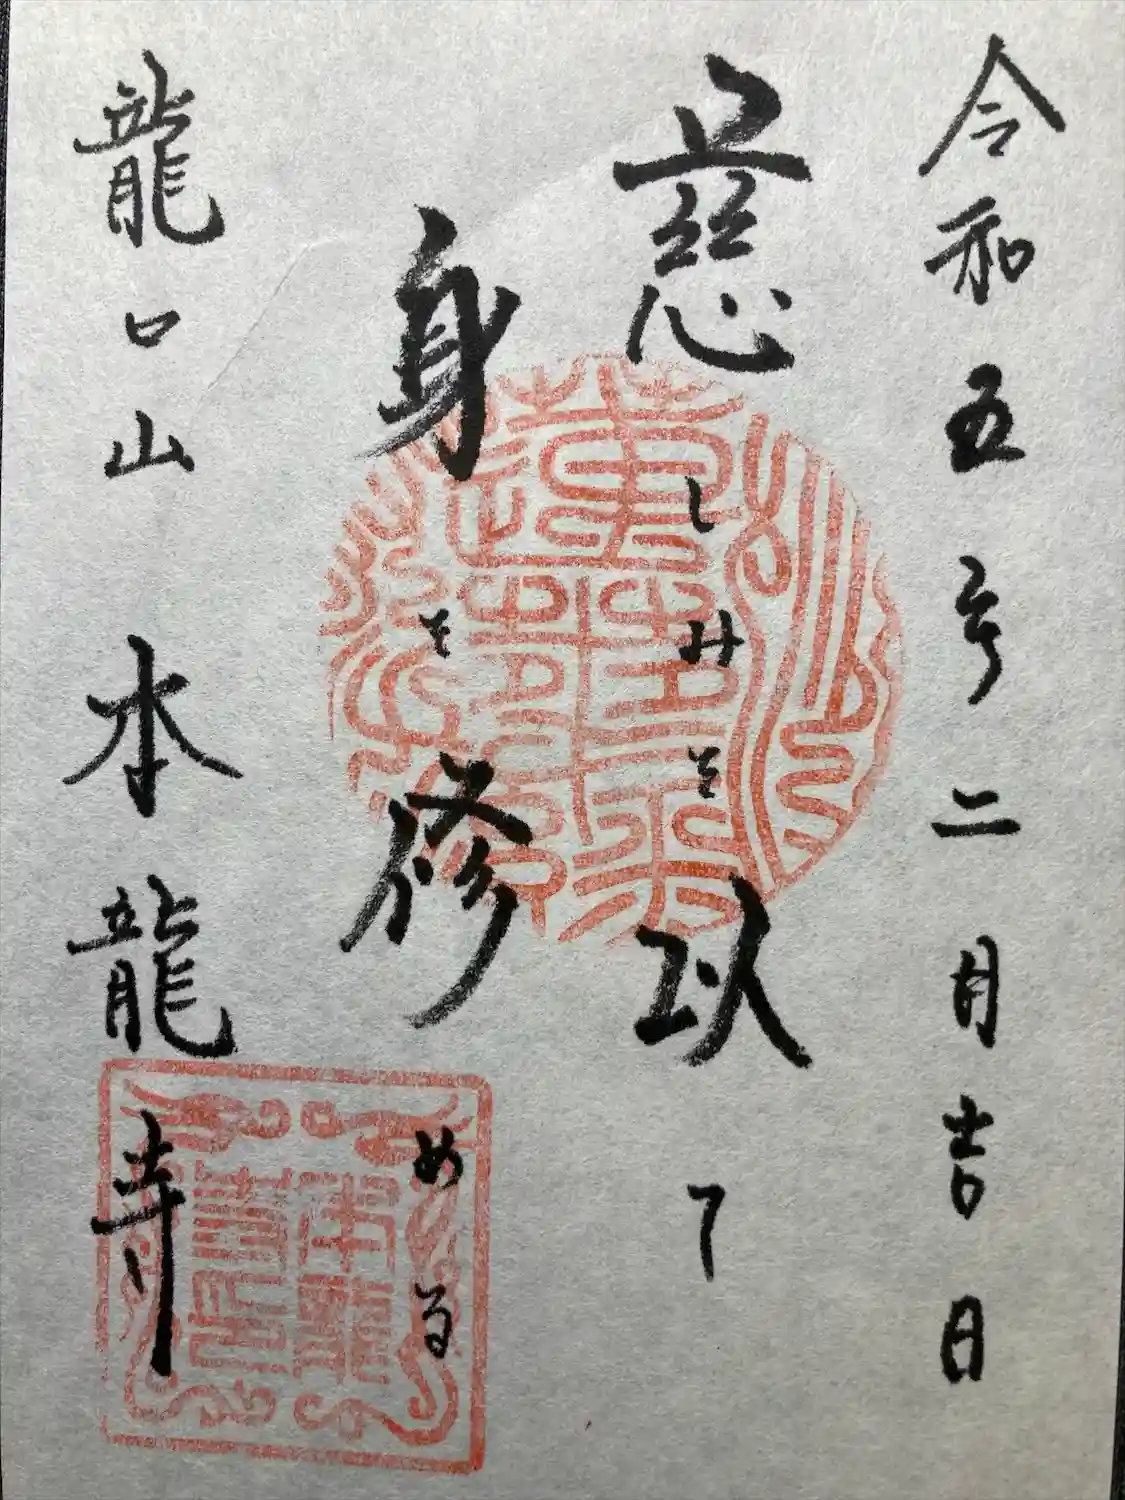 令和五年二月吉日
慈しみを以て
身を修める
龍口山本龍寺